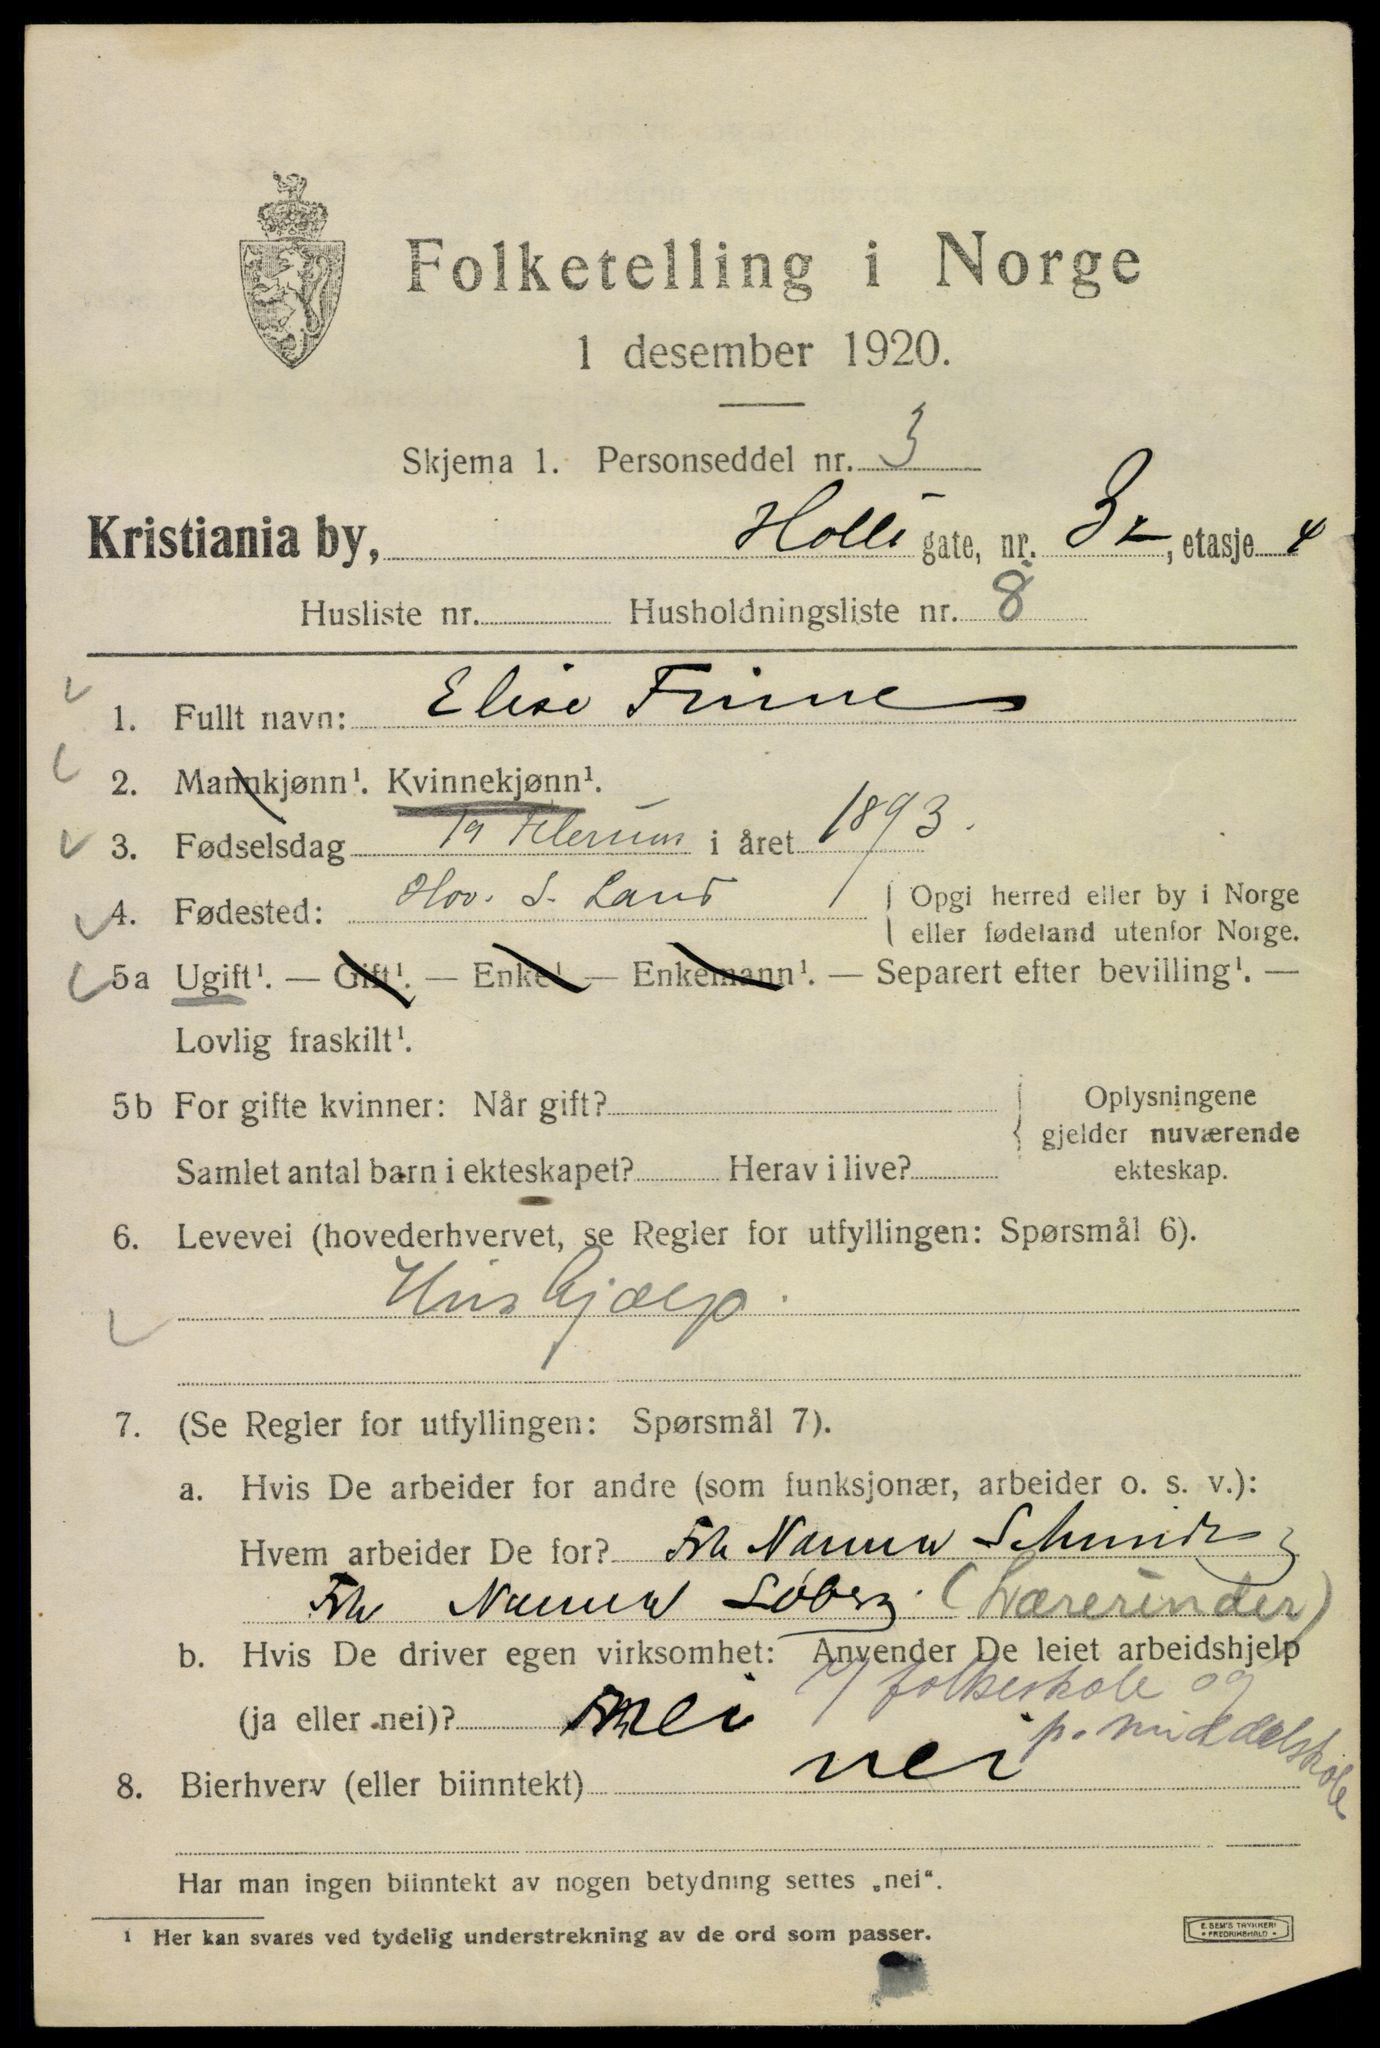 Folketelling i Norge
1 desember 1920.
Skjema 1. Personseddel nr. 3
Kristiania by, Holls gate, nr. 3, etasje 4
Husliste nr. Husholdningsliste nr. 8
1. Fullt navn: Elise Finne
2. Mannkjønn¹. Kvinnekjønn¹.
3. Fødselsdag 19 i året 1893.
4. Fødested: Hov. S. Land
Opgi herred eller by i Norge
eller fødeland utenfor Norge.
5a Ugift¹. — Gift¹. — Enke¹ — Enkemann¹. — Separert efter bevilling¹. —
Lovlig fraskilt¹.
5b For gifte kvinner: Når gift?
Samlet antal barn i ekteskapet? Herav i live?
Oplysningene
gjelder nuværende
ekteskap.
6. Levevei (hovederhvervet, se Regler for utfyllingen: Spørsmål 6).
Hushjælp.
7. (Se Regler for utfyllingen: Spørsmål 7).
a. Hvis De arbeider for andre (som funksjonær, arbeider o. s. v.):
Hvem arbeider De for? Frk Nanna Schmidt
Frk Nanna Søberg. (Lærerinder)
b. Hvis De driver egen virksomhet: Anvender De leiet arbeidshjelp
v/ folkeskole og
(ja eller nei)? nei
p. middelskole
8. Bierhverv (eller biinntekt) nei
Har man ingen biinntekt av nogen betydning settes „nei“.
¹ Her kan svares ved tydelig understrekning av de ord som passer.
E. SEM'S TRYKKERI
FREDRIKSHALD